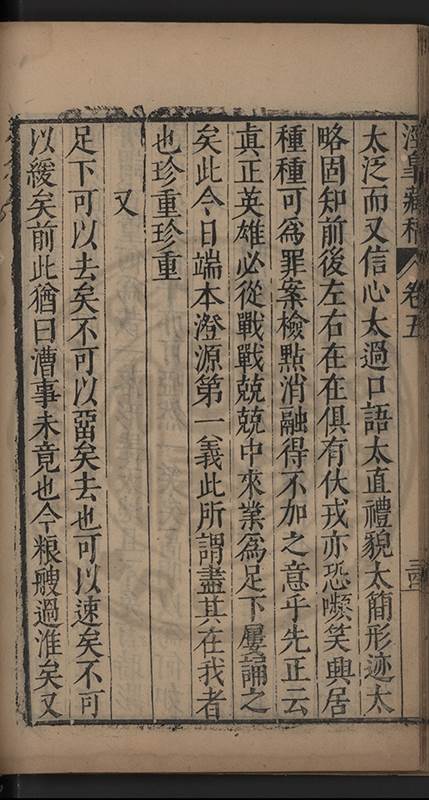 涇皐藏稿 卷五 三
太泛而又信心太過口語太直禮貌太簡形迹太
略固知前後左右在在俱有伏戎亦恐嚬笑興居
種種可爲罪案檢點消融得不加之意乎先正云
眞正英雄必從戰戰兢兢中來業爲足下屢誦之
矣此今日端本澄源第一義此所謂盡其在我者
也珍重珍重
又
足下可以去矣不可以畱矣去也可以速矣不可
以緩矣前此猶曰漕事未竟也今粮艘過淮矣又